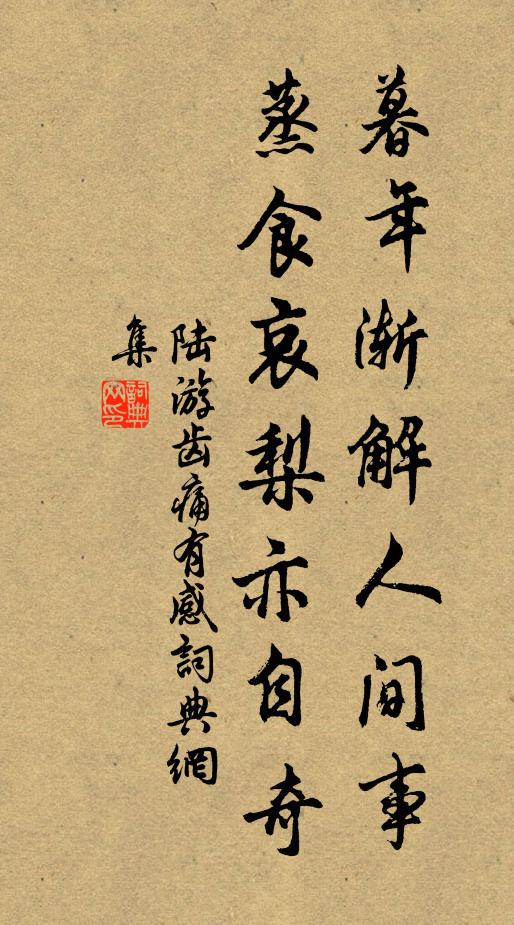 暮年渐解人间事
蒸食哀梨亦自奇
陆游齿痛有感词典網
集
詞典網印